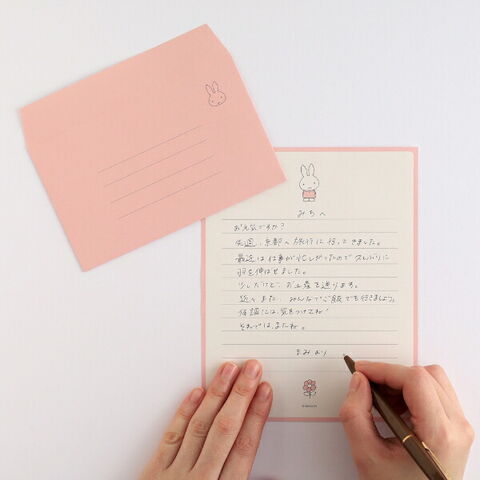 みちへ
お元気ですか？
先週、京都へ旅行に行ってきました。
最近は仕事が忙しかったので久しぶりに
羽を伸ばせました。
少しだけど、お土産を送ります。
近々また、みんなでご飯でも行きましょう。
体調には気をつけてね！
それでは、またね。
まみより